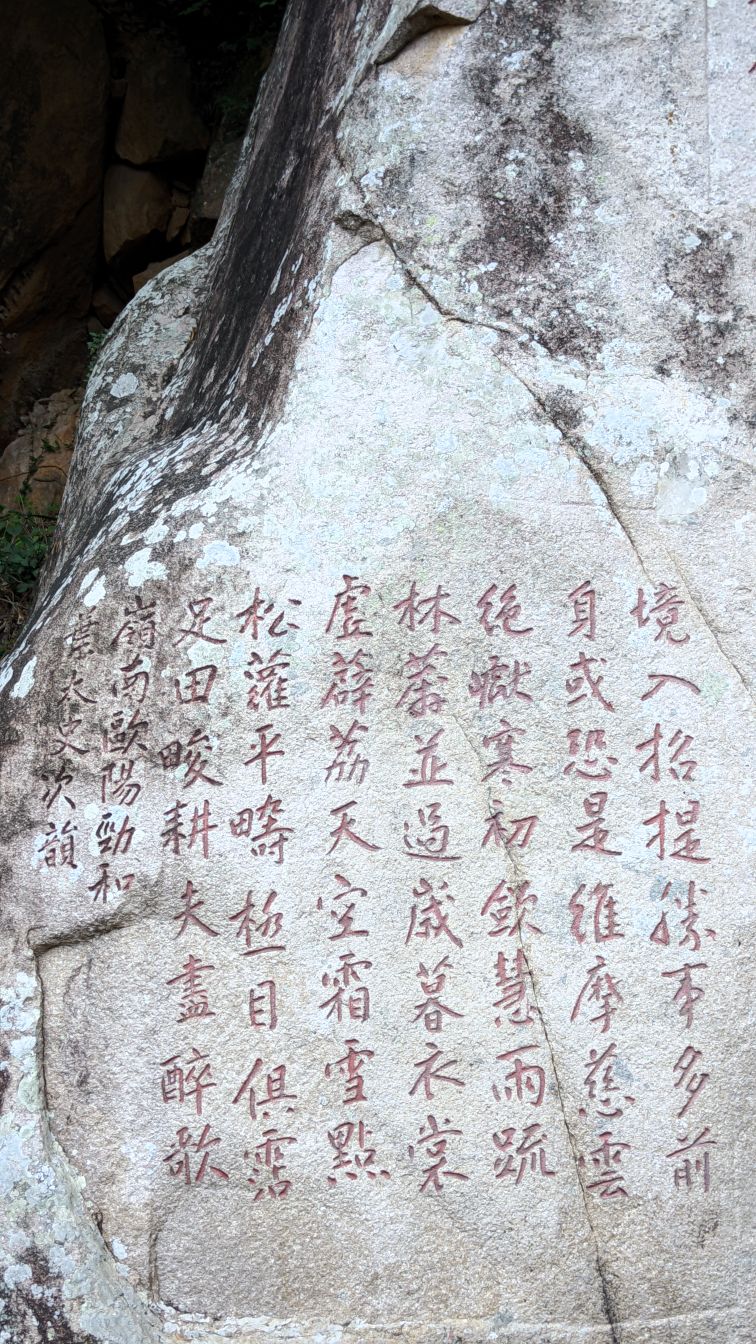 境入招提勝事多前
身或恐是維摩慈雲
絕巘寒初斂慧雨疏
林並過歲暮衣裳
虛薜荔天空霜雪點
松蘿平疇極目俱霑
足田畯耕夫盡醉歌
嶺南歐陽勁和
蔡太史次韻